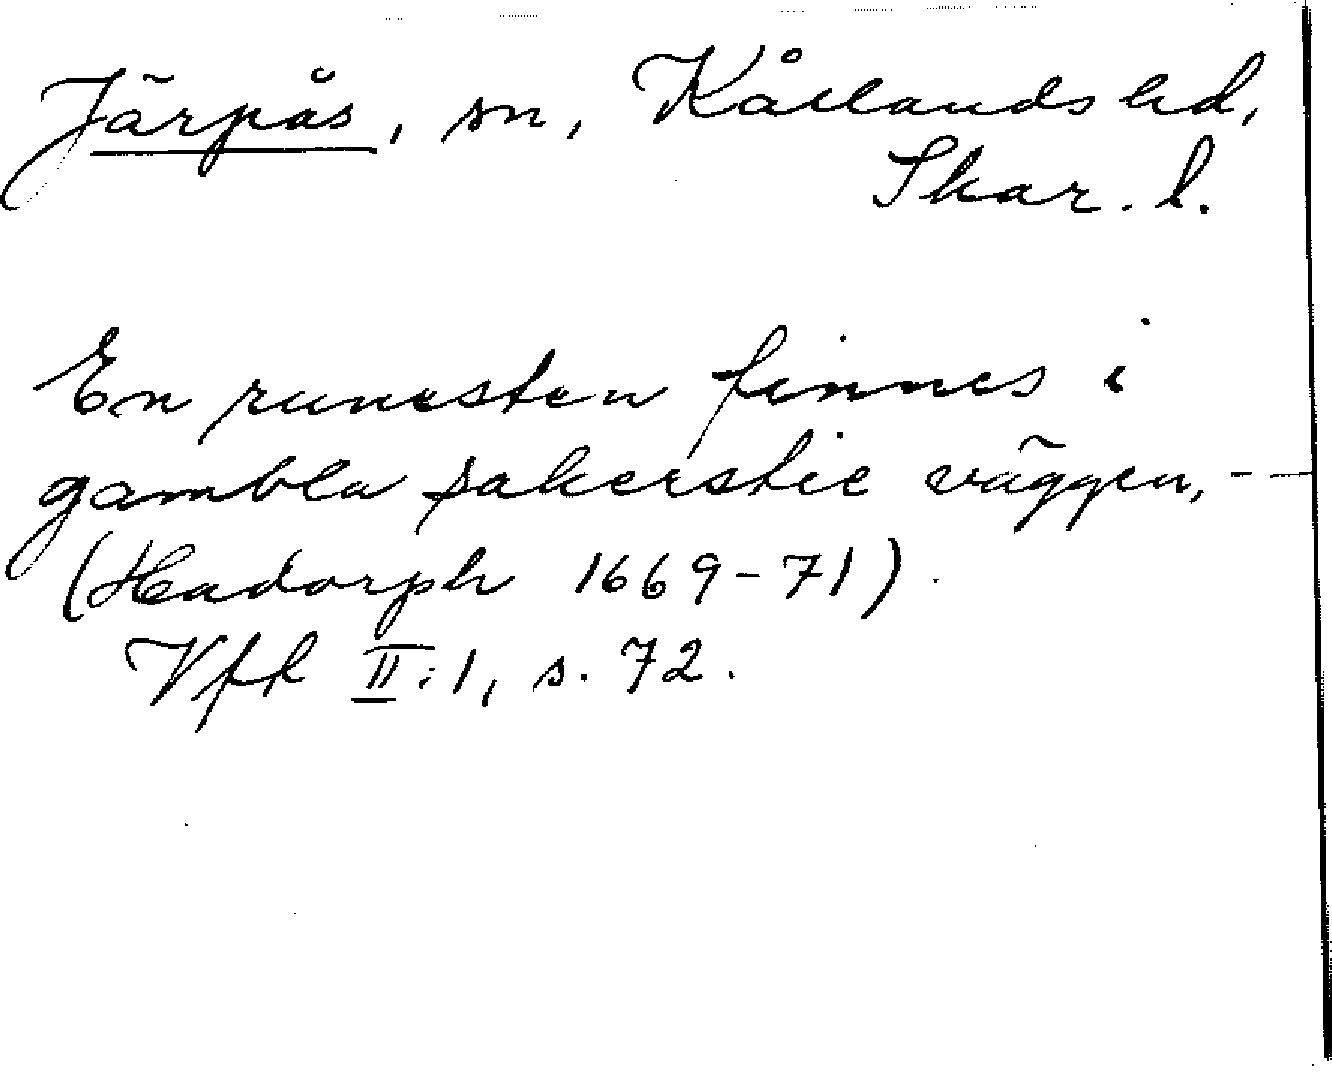 Järpås, sn, Kållands hd,
Skar. l.
En runesten finnes i
gambla sakerstie väggen, - -
(Hadorph 1669-71).
Vfk II:1, s. 72.